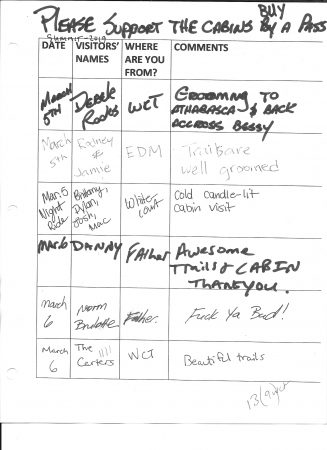 PLEASE SUPPORT THE CABINS BUY BY A PASS
SUMMIT-2019
DATE VISITORS' NAMES WHERE ARE YOU FROM? COMMENTS
MARCH 5TH DEREK ROOKS WCT GROOMING TO ATHABASCA & BACK ACCROSS BESSY
March 5th Rodney & Jamie EDM Trails are well groomed
Mar. 5 Night Ride Brittany, Dylan, Josh, Mac White court Cold candle-lit cabin visit
Mar 6 DANNY FATHER AWESOME TRAILS & CABIN THANKYOU.
march 6 Norm Father. Fuck Ya Bud!
March 6 The Carters WCT Beautiful trails
13